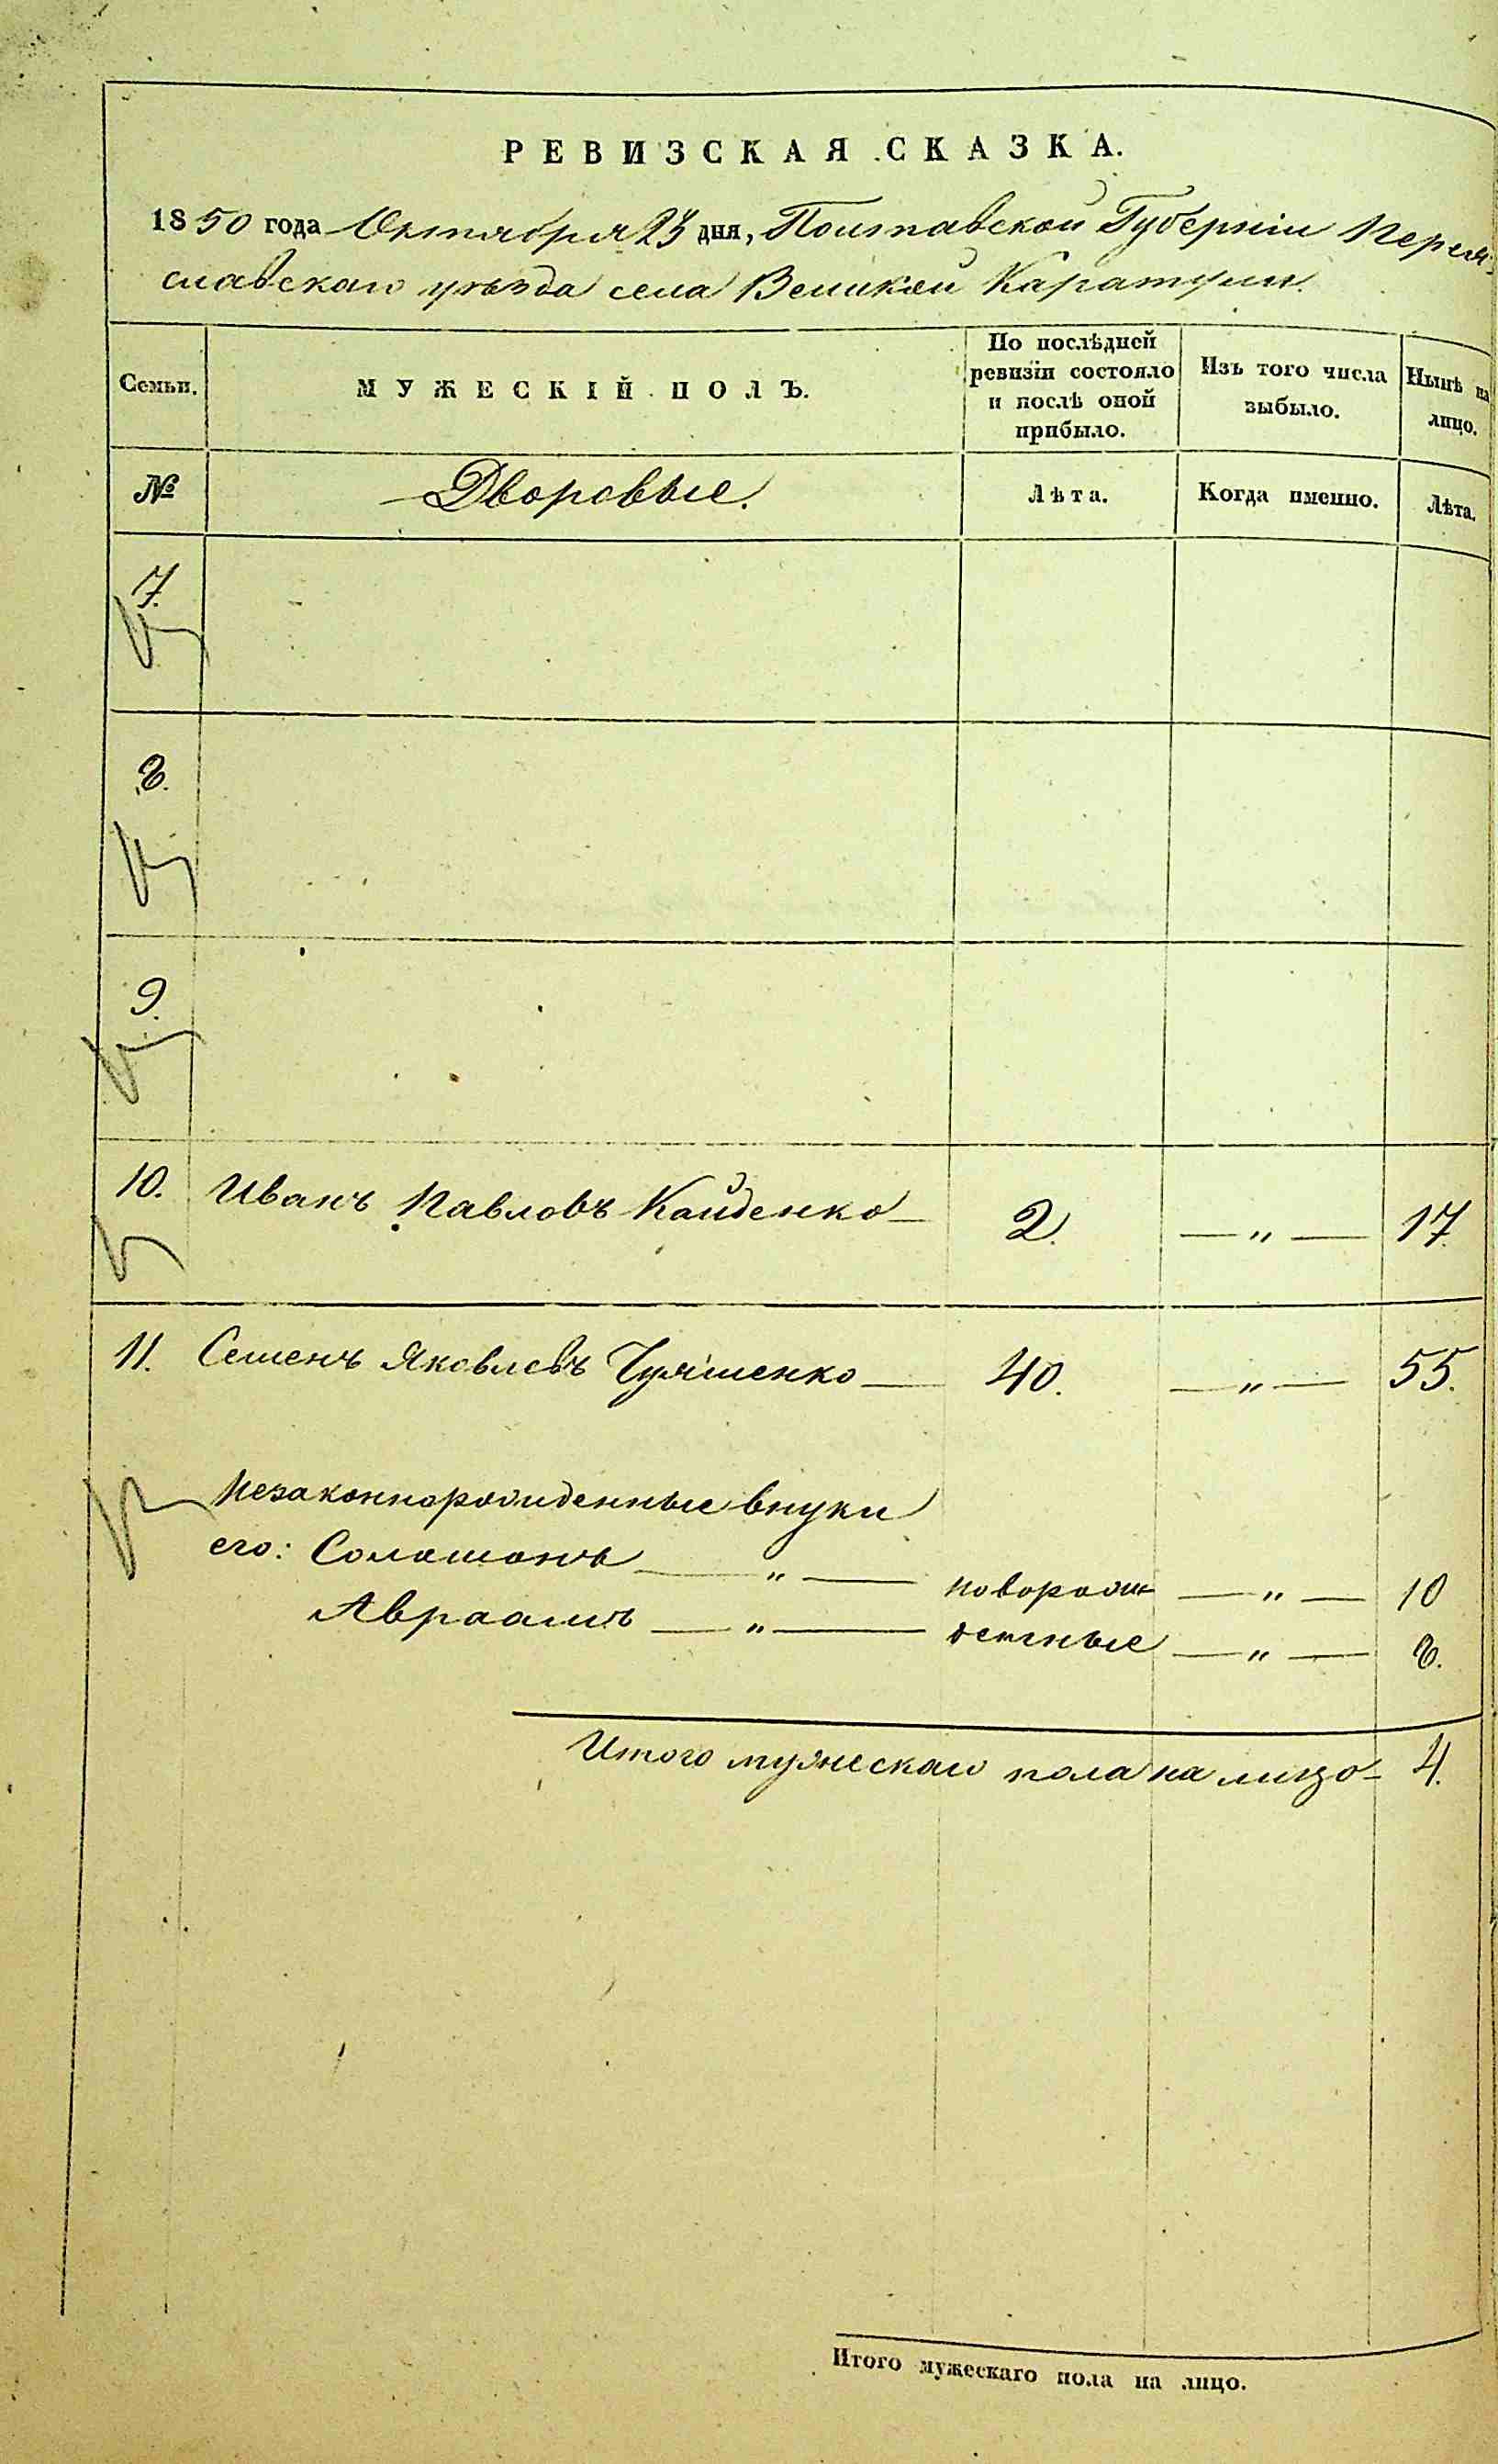 РЕВИЗСКАЯ СКАЗКА.
1850 года Октября 23 дня, Полтавской Губерніи Перея-
славскаго уѣзда села Великой Каратули.
Семьи. МУЖЕСКІЙ ПОЛЪ. По послѣдней ревизіи состояло и послѣ оной прибыло. Изъ того числа выбыло. Нынѣ на лицо.
№ Дворовые. Лѣта. Когда именно. Лѣта.
7.
8.
9.
10. Иванъ Павловъ Кайденко — 2. — „ — 17.
11. Семенъ Яковлевъ — 40. — „ — 55.
Незаконнорожденные внуки
его: Соломонъ — „ — новорож — „ — 10
Авраамъ — „ — денные — „ — 8.
Итого мужескаго пола на лицо — 4.
Итого мужескаго пола на лицо.